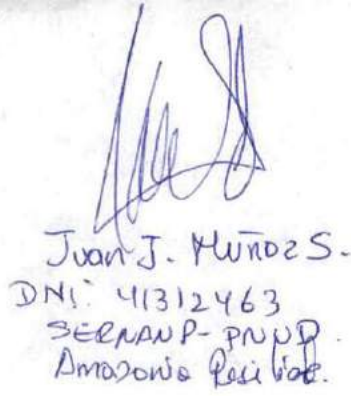 Juan J. Muñoz S.
DNI: 41312463
SERNANP - PNUD.
Amazonia Resiliente.